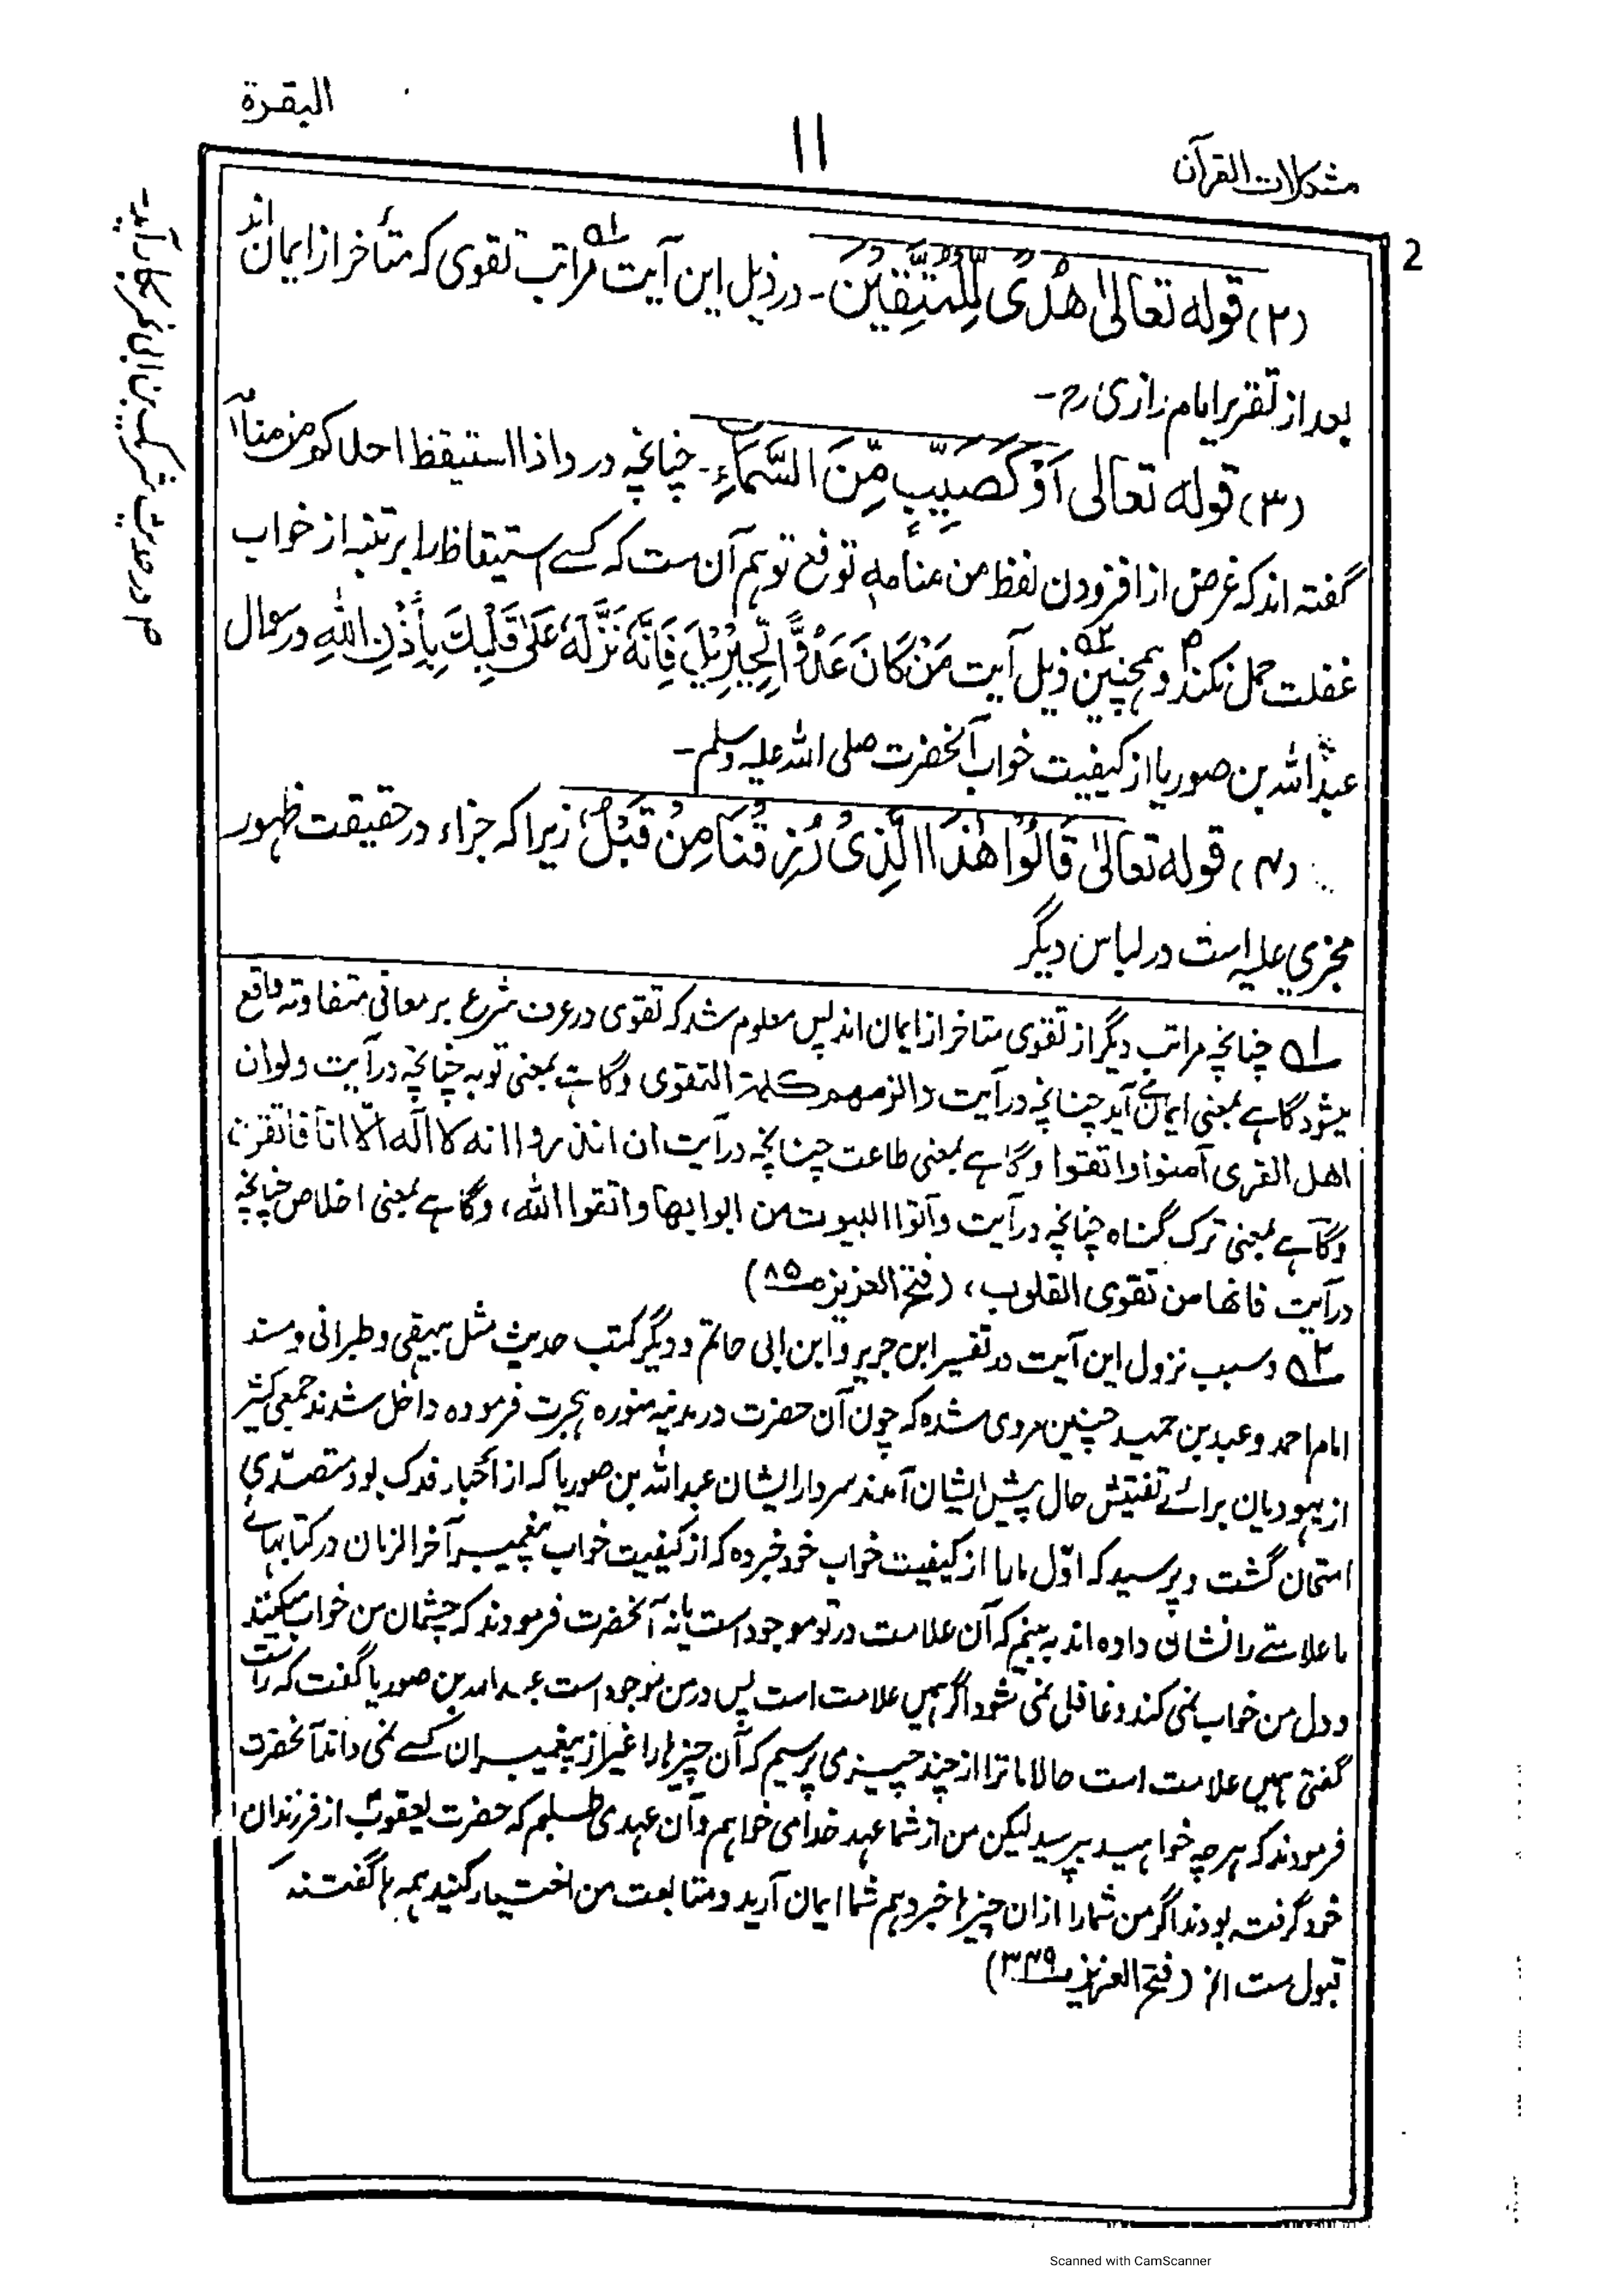 البقرة
۱۱
مشکلات القرآن
2
(۲) قوله تعالیٰ هُدًی لِّلْمُتَّقِیْنَ۔ در ذیل این آیت ۱ھ مراتب تقوی که متأخر از ایمان اند
بعد از تقریر امام رازی رح۔
(۳) قوله تعالی اَوْ کَصَیِّبٍ مِّنَ السَّمَآءِ۔ چنانچه در و اذا استیقظ احدکم من منامه
گفته اند که غرض از افزودن لفظ من منامه توهم آن ست که کسے استیقاظ را بر تنبه از خواب
غفلت حمل نکند و همچنین ۲ھ ذیل آیت مَنْ کَانَ عَدُوًّا لِّجِبْرِیْلَ فَاِنَّهٗ نَزَّلَهٗ عَلٰی قَلْبِكَ بِاِذْنِ اللّٰهِ در سوال
عبد الله بن صوریا از کیفیت خواب آنحضرت صلی الله علیه وسلم۔
(۴) قوله تعالیٰ قَالُوْا هٰذَا الَّذِیْ رُزِقْنَا مِنْ قَبْلُ، زیرا که جزاء در حقیقت ظهور
مجزی علیه است در لباس دیگر
۱ھ چنانچه مراتب دیگر از تقوی متاخر از ایمان اند پس معلوم شد که تقوی در عرف شرع بر معانی متفاوته واقع
میشود گاهے بمعنی ایمان آید چنانچه در آیت والزمهم کلمة التقوی وگاهے بمعنی توبه چنانچه در آیت ولو ان
اهل القری آمنوا واتقوا وگاهے بمعنی طاعت چنانچه در آیت ان انذروا انه لا اله الا انا فاتقون
وگاهے بمعنی ترک گناه چنانچه در آیت وآتوا البیوت من ابوابها واتقوا الله، وگاهے بمعنی اخلاص چنانچه
در آیت فانها من تقوی القلوب، (فتح العزیز صـ۸۵)
۲ھ وسبب نزول این آیت در تفسیر ابن جریر و ابن ابی حاتم و دیگر کتب حدیث مثل بیهقی و طبرانی و مسند
امام احمد و عبد بن حمید چنین مروی شده که چون آن حضرت در مدینه منوره هجرت فرموده داخل شدند جمعی کثیر
از یهودیان برائے تفتیش حال پیش ایشان آمدند سردار ایشان عبد الله بن صوریا که از احبار فدک بود متصدی
امتحان گشت و پرسید که اوّل ما را از کیفیت خواب خود خبر ده که از کیفیت خواب پیغمبر آخر الزمان در کتابهائے
ما علامتے را نشان داده اند به بینم که آن علامت در تو موجود است یا نه آنحضرت فرمودند که چشمان من خواب میکنند
و دل من خواب نمی کند و غافل نمی شود اگر همیں علامت است پس در من موجود است عبد الله بن صوریا گفت که راست
گفتی همیں علامت است حالا ما ترا از چند چیز می پرسیم که آن چیزها را غیر از پیغمبران کسے نمی داند آنحضرت
فرمودند که هرچه خواهید بپرسید لیکن من از شما عهد خدا می خواهم و آن عهد می طلبم که حضرت یعقوبؑ از فرزندان
خود گرفته بودند اگر من شما را ازان چیزها خبر دهم شما ایمان آرید و متابعت من اختیار کنید همه ها گفتند
قبول ست الخ (فتح العزیز صـ۳۴۹)
Scanned with CamScanner